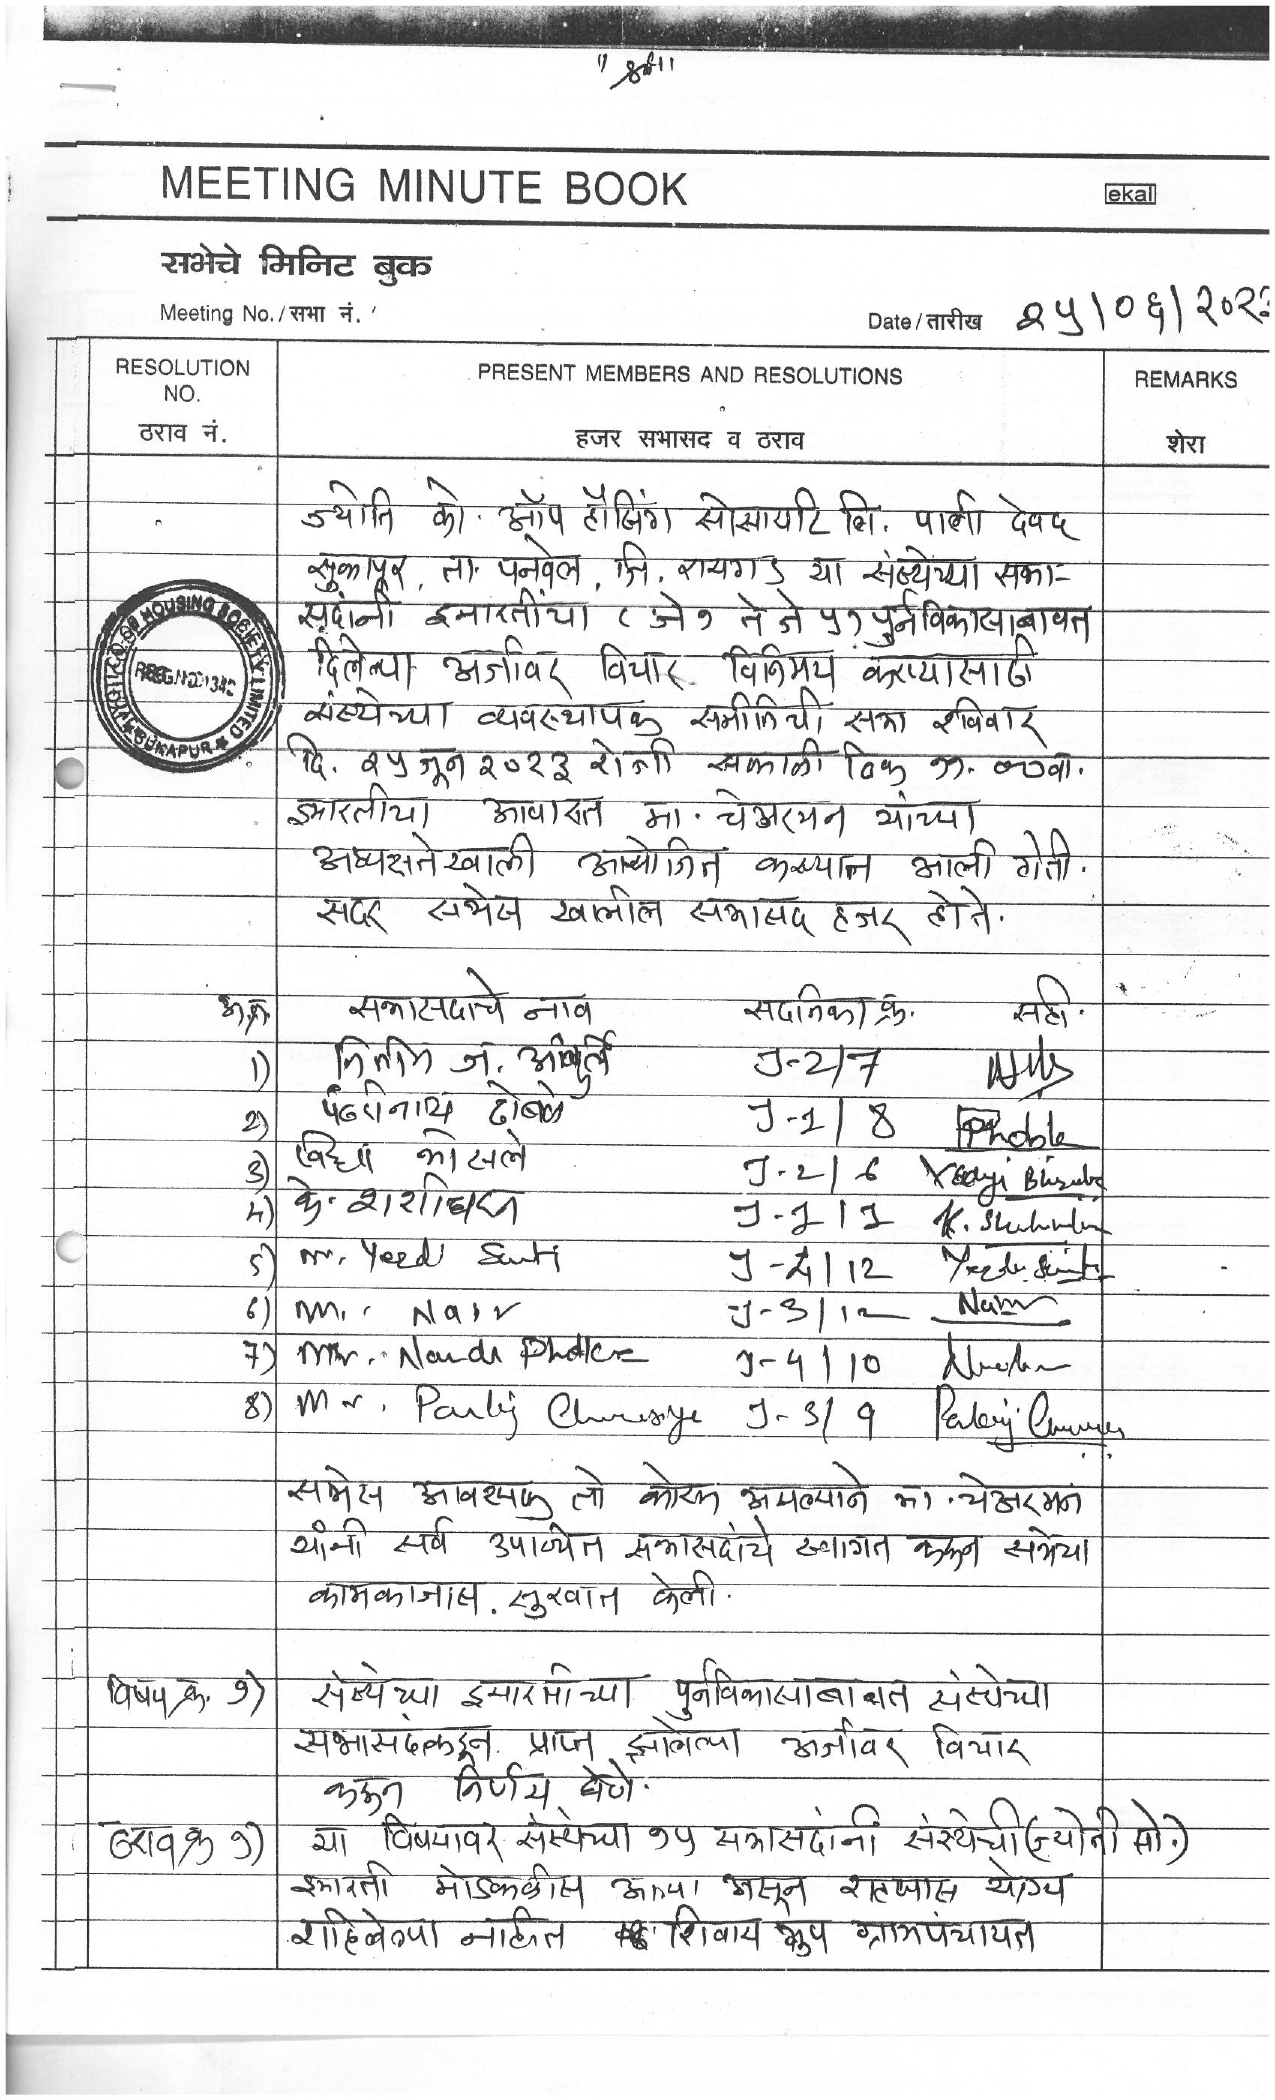 MEETING MINUTE BOOK
ekal
सभेचे मिनिट बुक
Meeting No./सभा नं.
Date/तारीख २५/०६/२०२३
RESOLUTION NO. ठराव नं.
PRESENT MEMBERS AND RESOLUTIONS हजर सभासद व ठराव
REMARKS शेरा
ज्योति को. ऑप हौसिंग सोसायटि लि. पाली देवद
सुकापूर, ता. पनवेल, जि. रायगड या संस्थेच्या सभा-
सदांनी इमारतींचा (जे१ ते जे ५) पुर्नविकासाबावत
दिलेल्या अर्जावर विचार विनिमय करण्यासाठी
संस्थेच्या व्यवस्थापक समीतिची सभा रविवार
दि. २५ जून २०२३ रोजी सकाळी ठिक
इमारतीच्या आवारात मा. चेअरमन यांच्या
अध्यक्षतेखाली आयोजित करण्यात आली होती.
सदर सभेस खालील सभासद हजर होते.
अ.क्र. सभासदाचे नाव सदनिका क्र. सही.
1) J-2/7
2) पंढरीनाथ ढोबळे J-1/8
3) विद्या भोसले J-2/6
4) के. शशीधरन J-1/1
5) Mr. J-4/12
6) Mr. Nair J-3/12 Nair
7) J-4/10
8) Mr. J-3/9
सभेस आवश्यक तो कोरम असल्याने मा. चेअरमन
यांनी सर्व उपस्थित सभासदांचे स्वागत करून सभेच्या
कामकाजास सुरवात केली.
विषय क्र. १) संस्थेच्या इमारतींच्या पुर्नविकासाबाबत संस्थेच्या
सभासदांकडून प्राप्त झालेल्या अर्जावर विचार
करून निर्णय घेणे.
ठराव क्र १) या विषयावर संस्थेच्या १५ सभासदांनी संस्थेची (ज्योती सो.)
इमारती मोडकळीस आल्या असून राहण्यास योग्य
राहिलेल्या नाहीत शिवाय ग्रुप ग्रामपंचायत
JYOTI CO. OP HOUSING SOCIETY LIMITED SUKAPUR